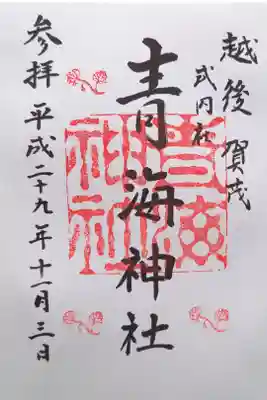 越後賀茂
式内社
青海神社
参拝 平成二十九年十一月三日
青海神社